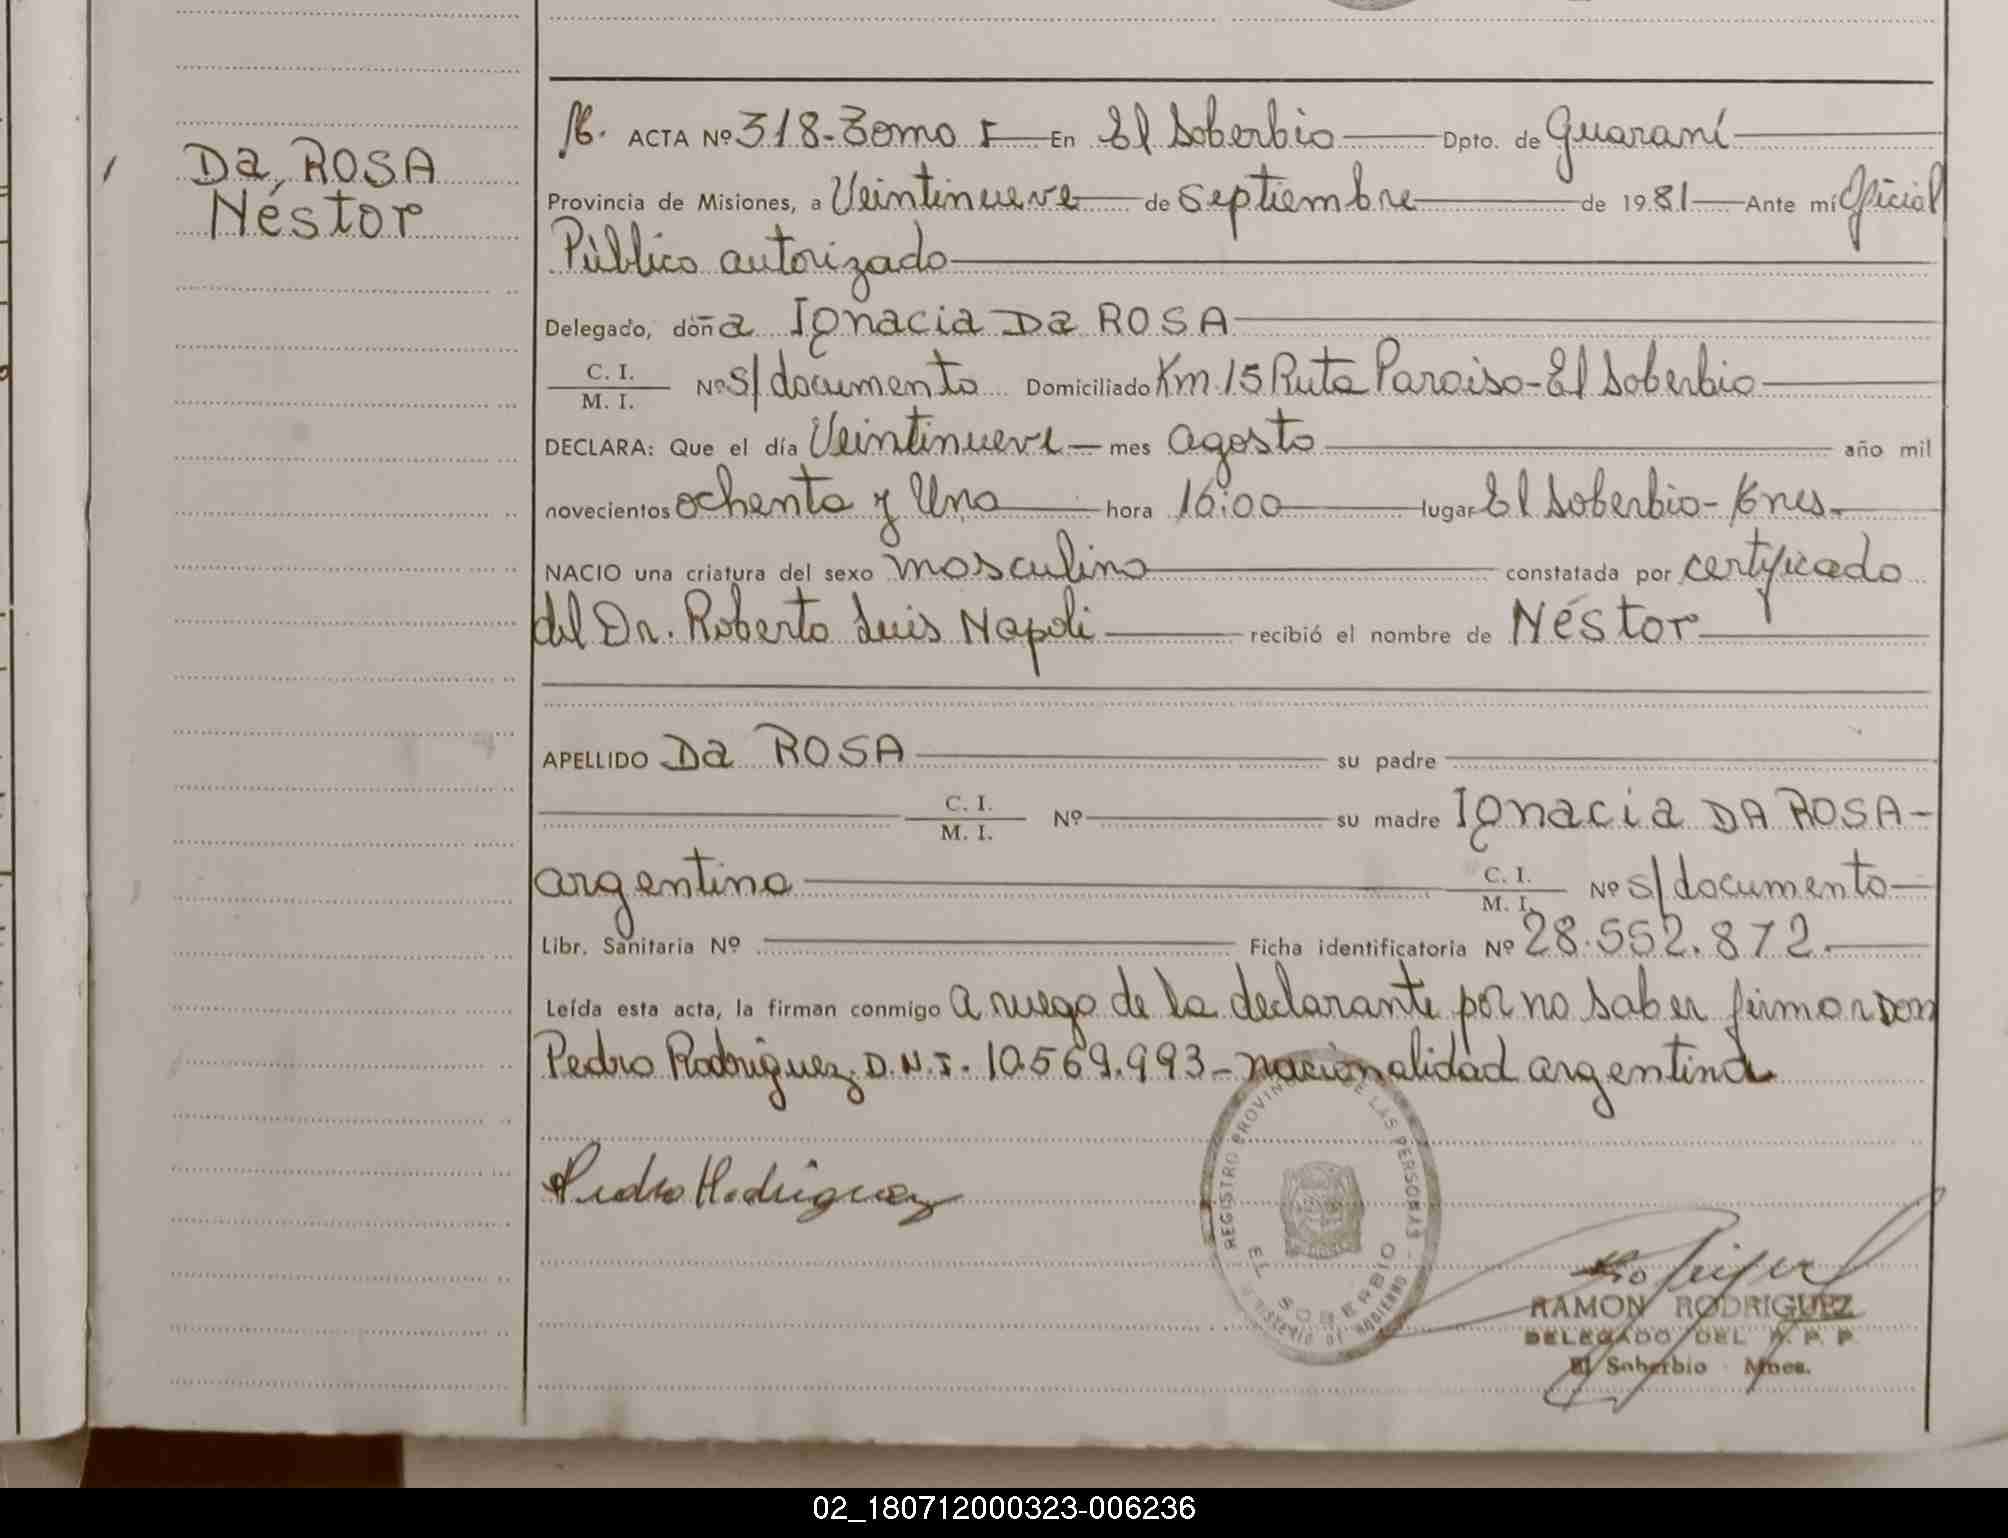 Da, ROSA
Néstor
ACTA Nº 318-Tomo I En El Soberbio Dpto. de Guaraní
Provincia de Misiones, a Veintinueve de Septiembre de 1981 Ante mí Oficial
Público autorizado
Delegado, doña Ignacia Da ROSA
C. I.
M. I. Nº S/documento Domiciliado Km.15 Ruta Paraiso-El Soberbio
DECLARA: Que el día Veintinueve mes agosto año mil
novecientos ochenta y Uno hora 16:00 lugar El Soberbio-
NACIO una criatura del sexo masculino constatada por certificado
del Dr. Roberto Luis Napoli recibió el nombre de Néstor
APELLIDO Da ROSA su padre
C. I.
M. I. Nº su madre Ignacia DA ROSA-
argentina C. I.
M. I. Nº S/documento
Libr. Sanitaria Nº Ficha identificatoria Nº 28.552.872.
Leída esta acta, la firman conmigo a ruego de la declarante por no saber firmar Don
Pedro Rodriguez D.N.I. 10.569.993- nacionalidad argentina
Pedro Rodriguez
REGISTRO PROVIN DE LAS PERSONAS -
EL SOBERBIO
RAMON RODRIGUEZ
DELEGADO DEL R. P. P
El Soberbio Mnes.
02_180712000323-006236